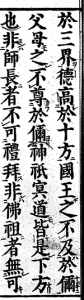 於三界德高於十方國王之不及於佛
父母之不尊於佛神祇冥道皆是下方
也非師長者不可禮拜非佛祖者無可